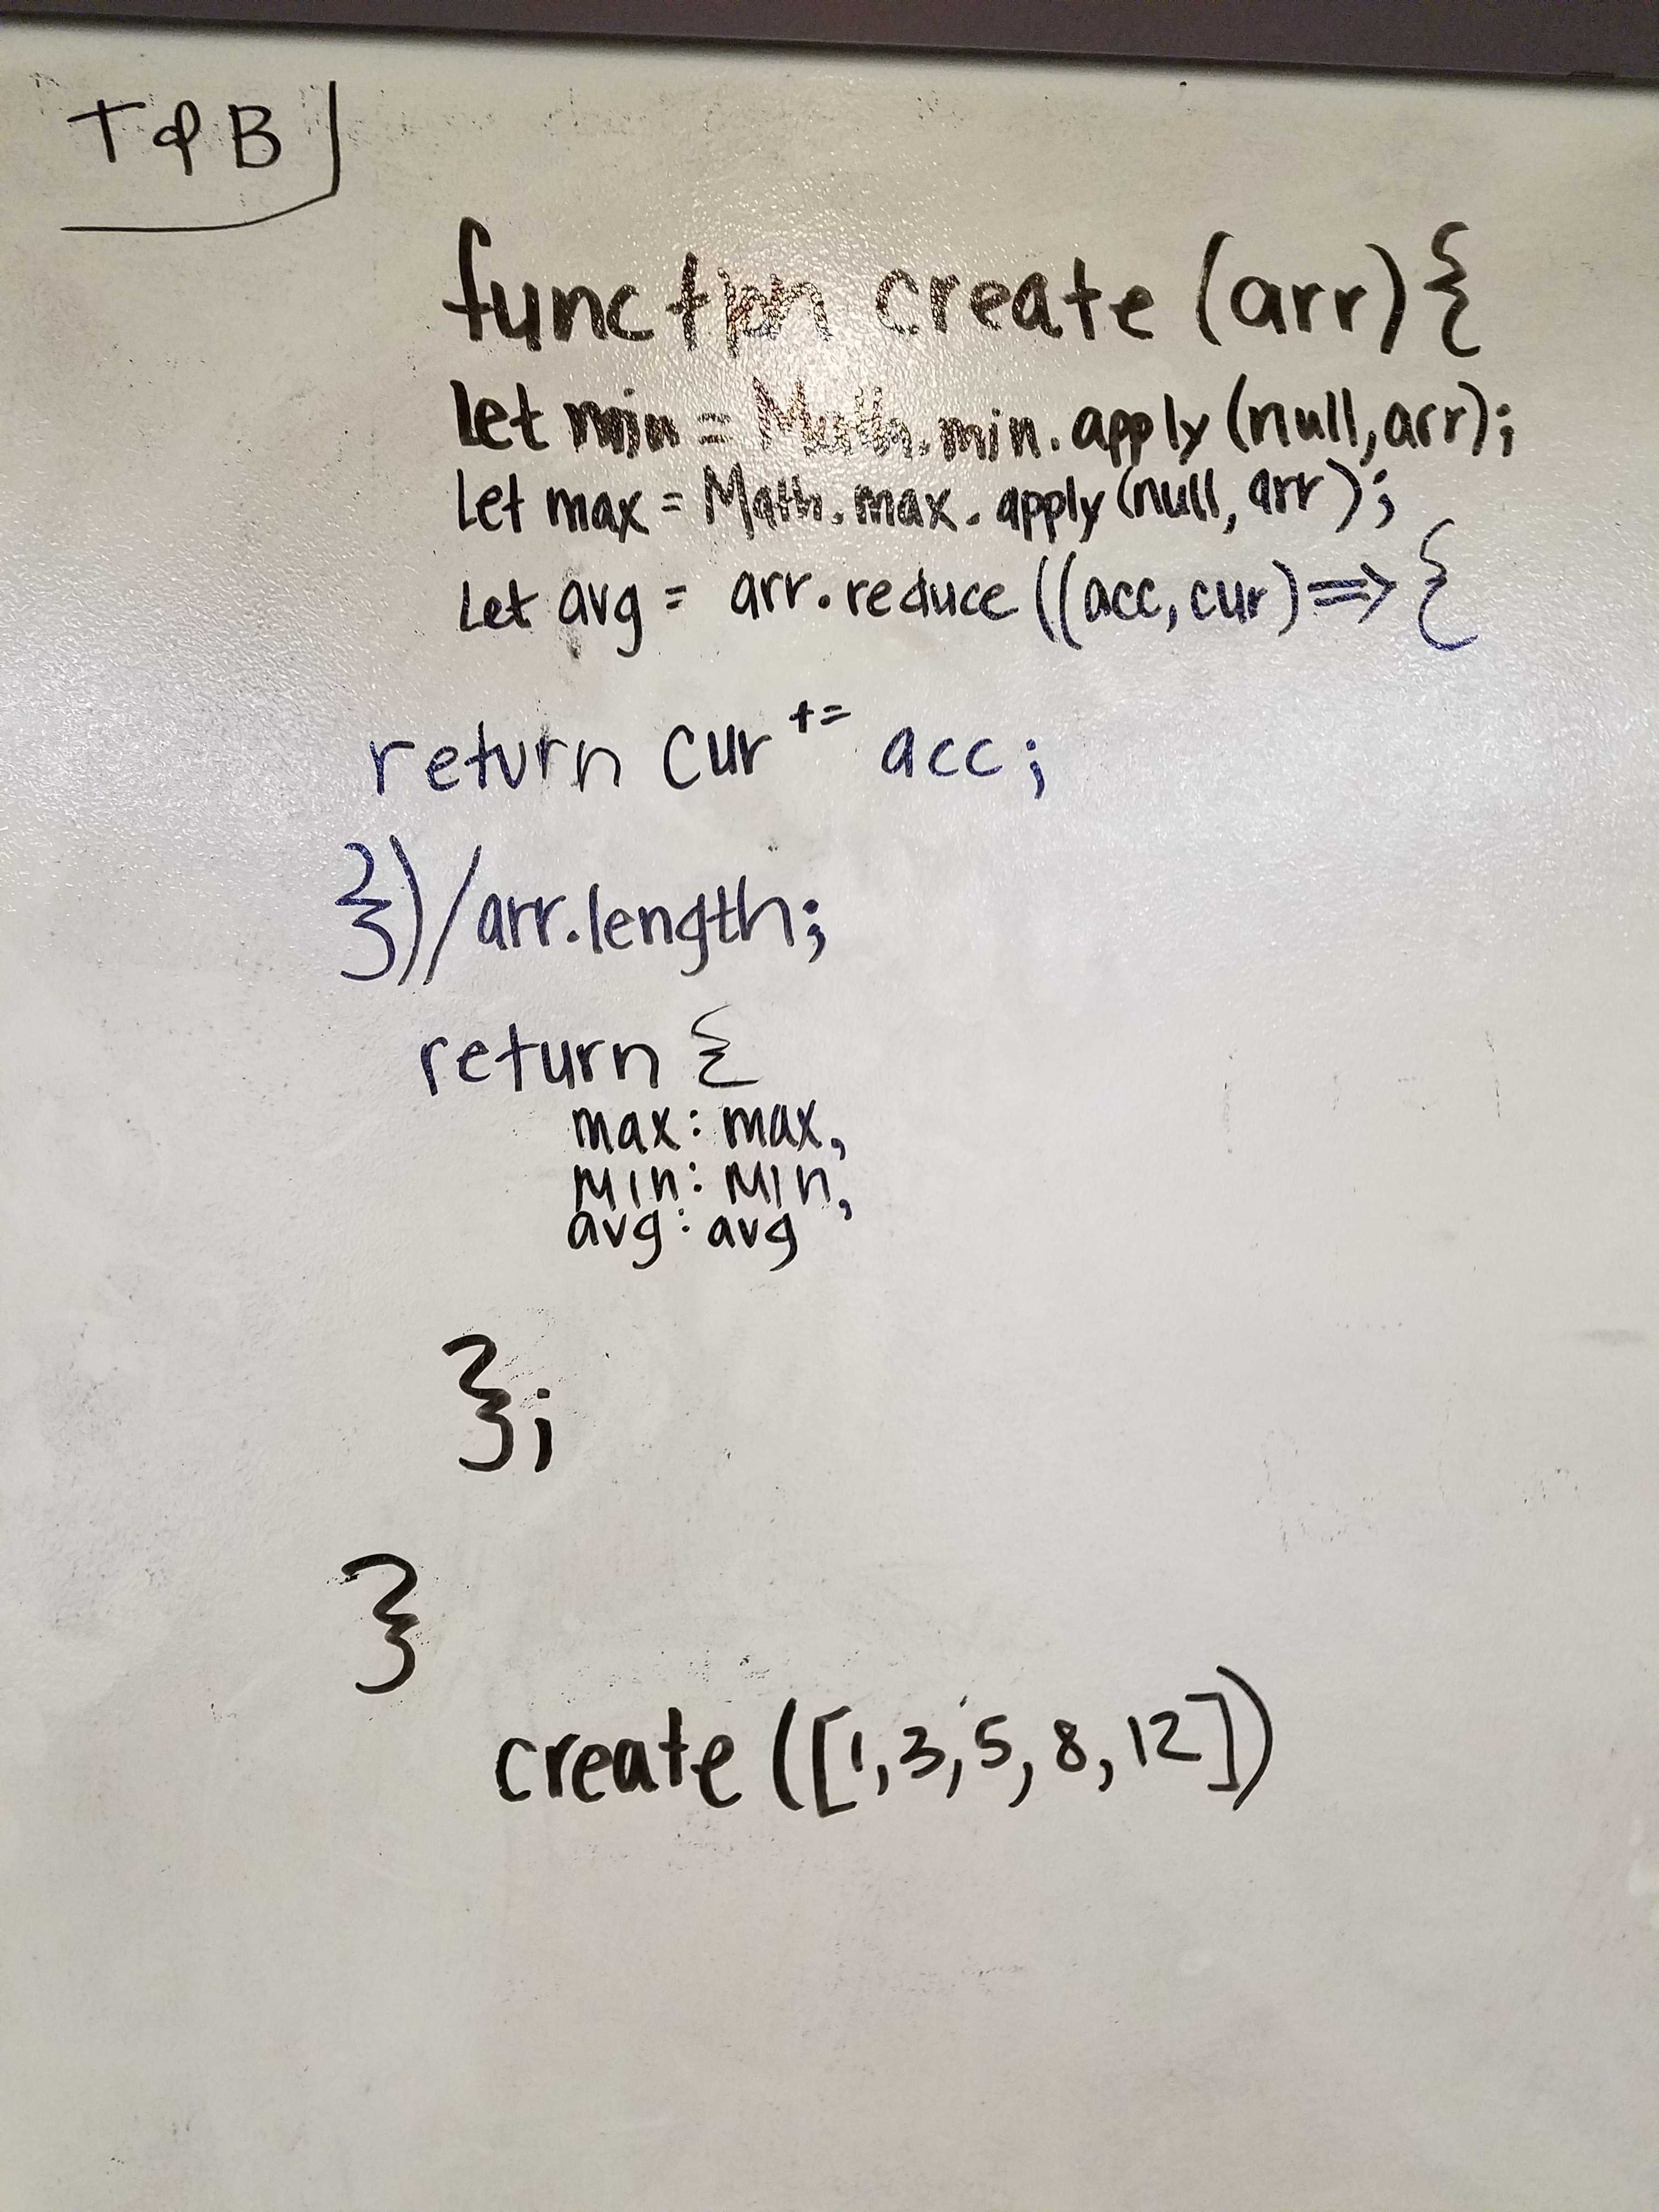 T & B
function create (arr) {
let min = Math.min.apply (null, arr);
let max = Math.max.apply (null, arr);
let avg = arr.reduce ((acc, cur) => {
return cur += acc;
})/arr.length;
return {
max: max,
min: min,
avg: avg
};
}
create ([1,3,5,8,12])